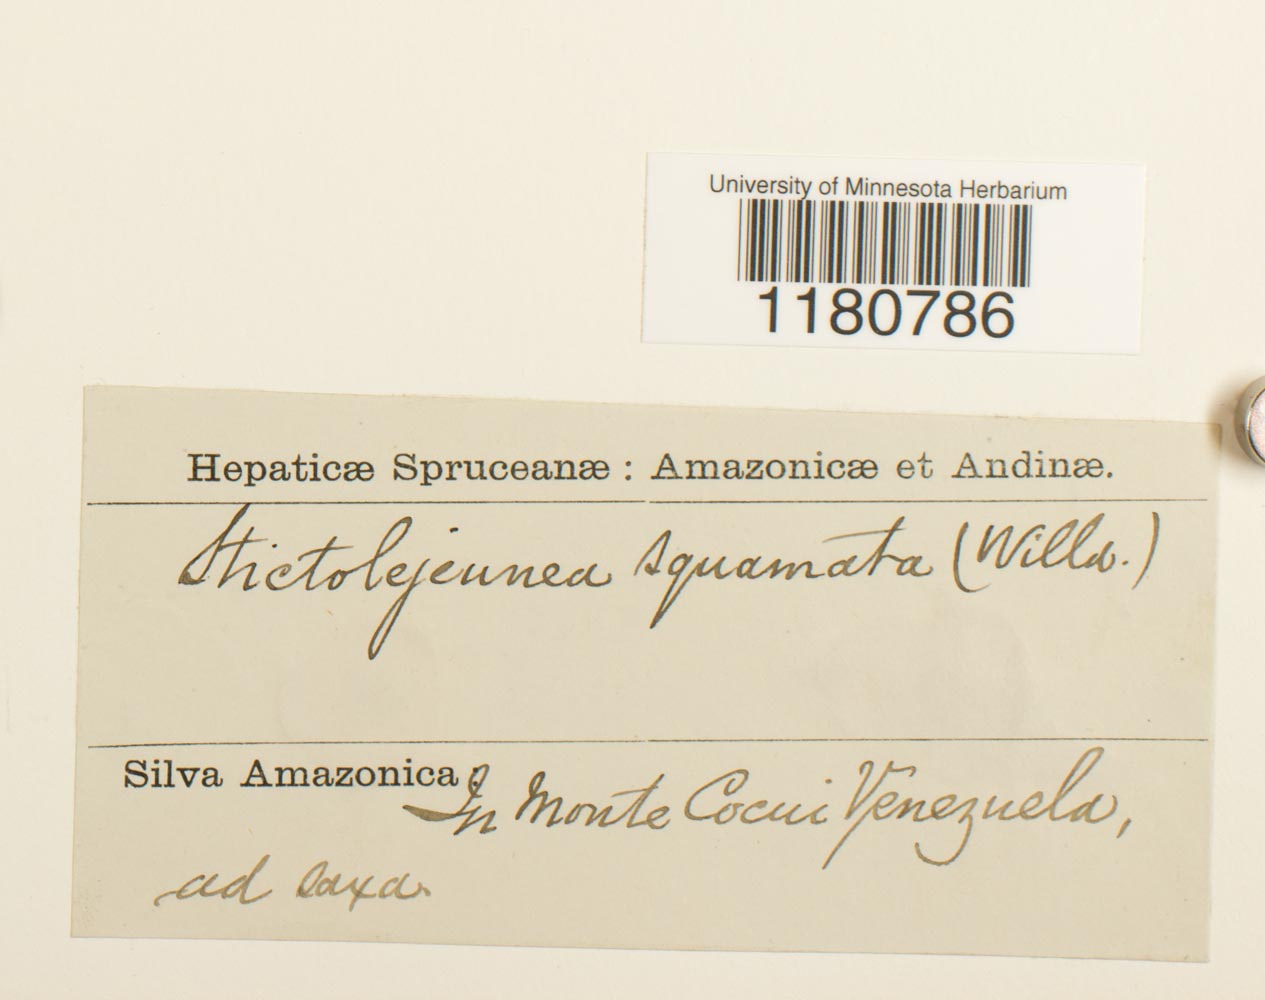 University of Minnesota Herbarium
1180786
Hepaticæ Spruceanæ : Amazonicæ et Andinæ.
Stictolejeunea squamata (Willd.)
Silva Amazonica: In Monte Cocui Venezuela,
ad saxa.